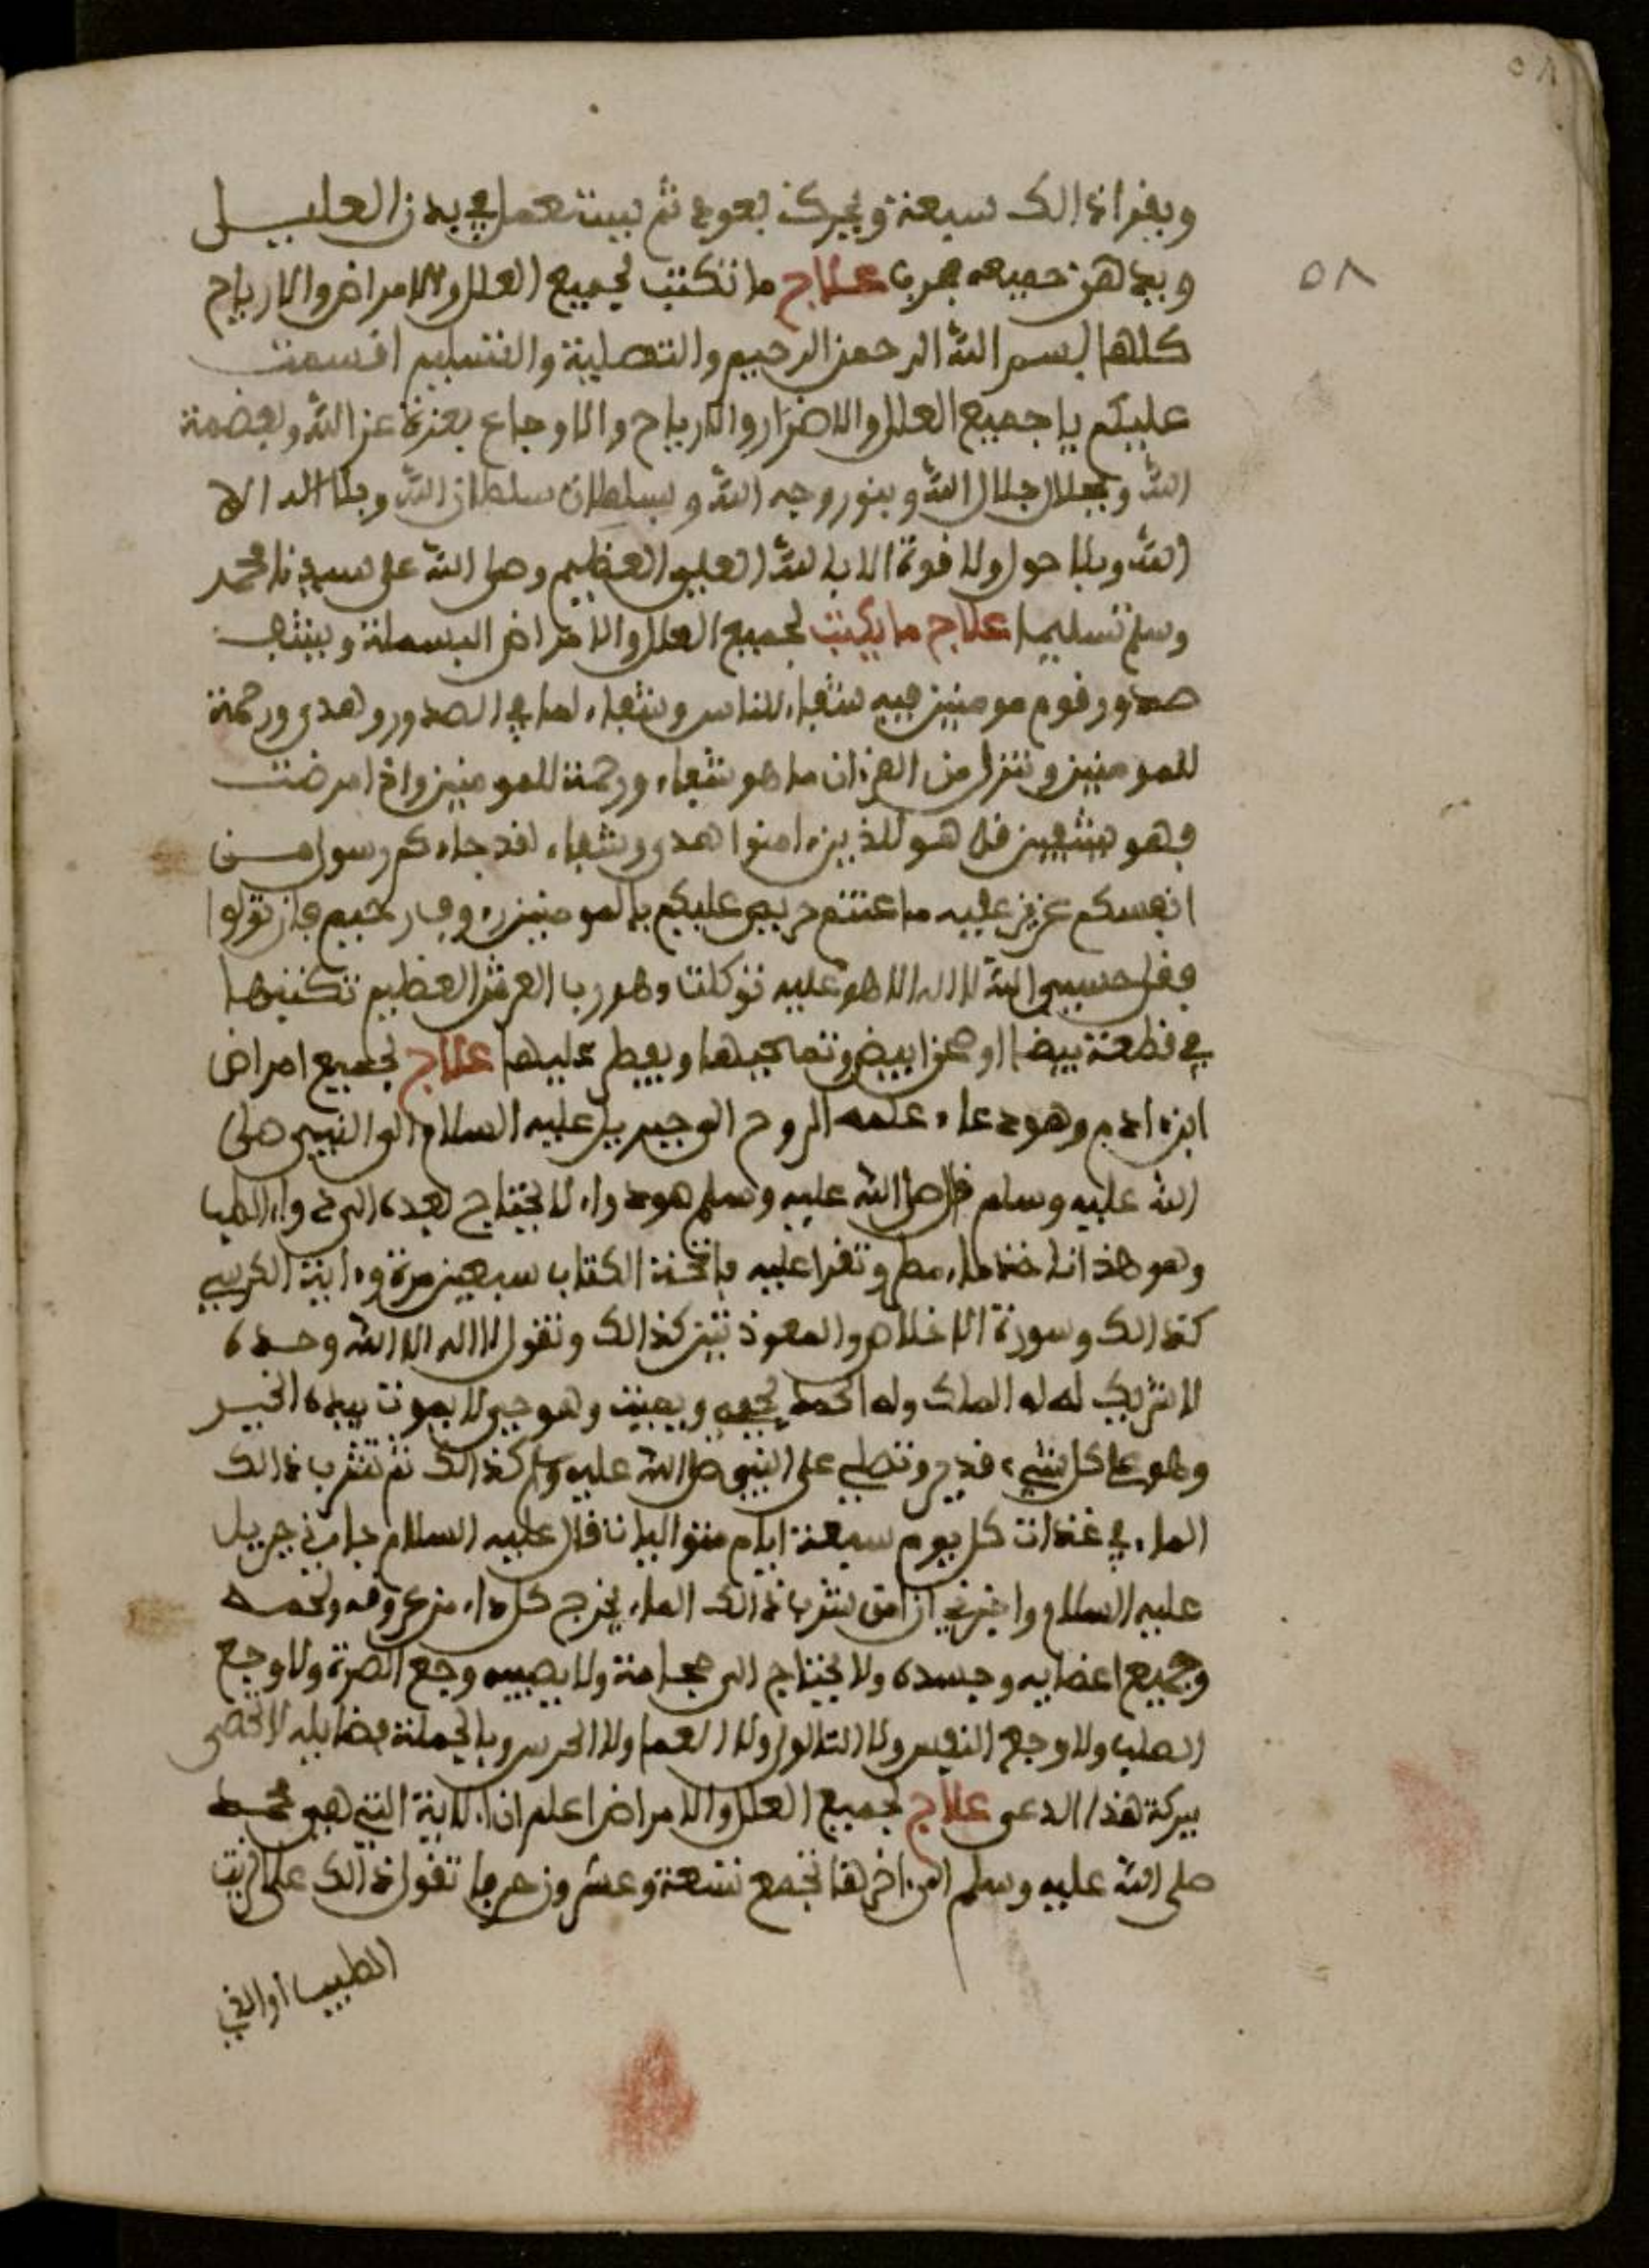 ٥٨
ويقرا ذالك سبعة ويحرك بعود ثم بيت تعمل في بدن العليل
ويدهن جميعه مجرب علاج ما تكتب لجميع العلل والامراض والارياح
٥٨
كلها بسم الله الرحمن الرحيم والتصلية والتسليم اقسمت
عليكم يا جميع العلل والاضرار والارياح والاوجاع بعزة عز الله وبعضمة
الله وبجلال جلال الله وبنور وجه الله وبسلطان سلطان الله وبلا اله الا
الله وبلا حول ولا قوة الا بالله العلي العظيم وصلى الله على سيدنا محمد
وسلم تسليما علاج ما يكتب لجميع العلل والامراض البسملة ويشف
صدور قوم مومنين فيه شفاء للناس وشفاء لما في الصدور وهدى ورحمة
للمومنين وننزل من القران ما هو شفاء ورحمة للمومنين واذا مرضت
فهو يشفين قل هو للذين ءامنوا هدى وشفاء لقد جاءكم رسول من
انفسكم عزيز عليه ما عنتم حريص عليكم بالمومنين رءوف رحيم فان تولوا
فقل حسبي الله لا اله الا هو عليه توكلت وهو رب العرش العظيم تكتبها
في قطعة بيضا او صحن ابيض وتمحيها ويفطر عليها علاج لجميع امراض
ابن ءادم وهو دعاء علمه الروح الوجبريل عليه السلام الى النبي صلى
الله عليه وسلم قال صلى الله عليه وسلم هو دواء لا يحتاج بعده الى دواء الطبا
وهو هذا تاخذ ماء مطر وتقرا عليه فاتحة الكتاب سبعين مرة وءاية الكرسي
كذالك وسورة الاخلاص والمعوذتين كذالك وتقول لا اله الا الله وحده
لا شريك له له الملك وله الحمد يحيي ويميت وهو حي لا يموت بيده الخير
وهو على كل شيء قدير وتصلي على النبي صلى الله عليه وسلم كذالك ثم تشرب ذالك
الماء في غدات كل يوم سبعة ايام متواليات قال عليه السلام جاءني جبريل
عليه السلام واخبرني ان من شرب ذالك الماء يخرج كل داء من عروقه ولحمه
وجميع اعضايه وجسده ولا يحتاج الى حجامة ولا يصيبه وجع الصرة ولا وجع
الصلب ولا وجع النفس ولا الثالول ولا العما ولا الخرس وبالجملة فضايله لا تحصى
ببركة هذا الدعى علاج لجميع العلل والامراض اعلم ان الاية التي هي محمد
صلى الله عليه وسلم الى ءاخرها تجمع تسعة وعشرون حرفا تقرا ذالك على الزيت
الطيب او الذي